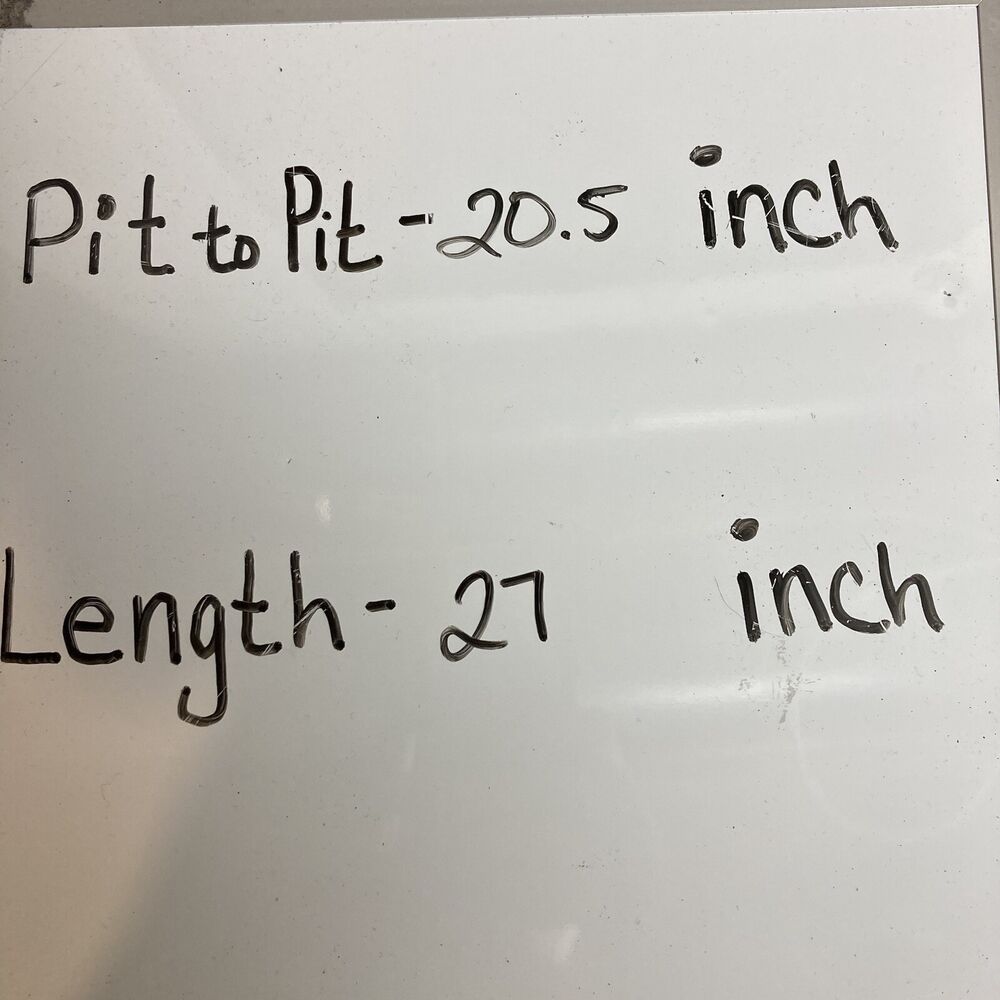 Pit to Pit - 20.5 inch
Length - 27 inch